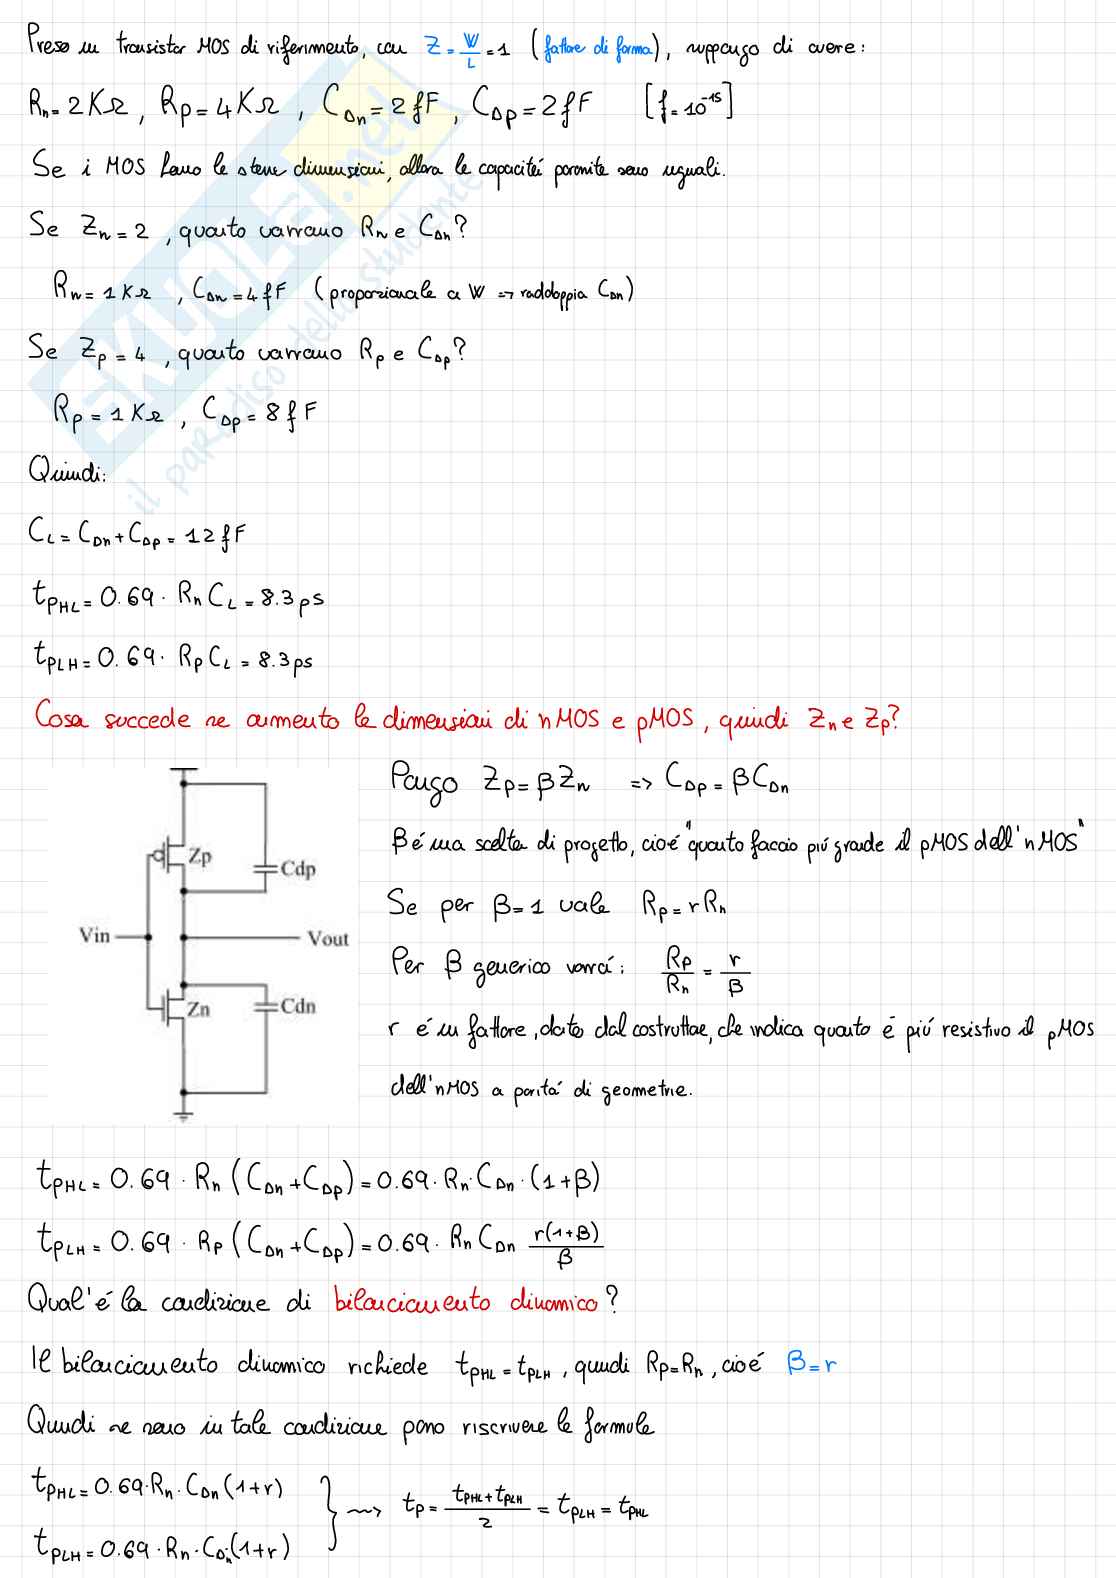 Preso un transistor MOS di riferimento, con Z = W/L = 1 (fattore di forma), suppongo di avere:
Rn = 2KΩ, Rp = 4KΩ, CDn = 2fF, CDp = 2fF [f = 10^-15]
Se i MOS hanno le stesse dimensioni, allora le capacitá parassite sono uguali.
Se Zn = 2, quanto varranno Rn e CDn?
Rn = 1KΩ, CDn = 4fF (proporzionale a W => raddoppia CDn)
Se Zp = 4, quanto varranno Rp e CDp?
Rp = 1KΩ, CDp = 8fF
Quindi:
CL = CDn + CDp = 12fF
tPHL = 0.69 · Rn CL = 8.3ps
tPLH = 0.69 · Rp CL = 8.3ps
Cosa succede se aumento le dimensioni di nMOS e pMOS, quindi Zn e Zp?
Pongo Zp = βZn => CDp = βCDn
β é una scelta di progetto, cioé "quanto faccio piú grande il pMOS dell'nMOS"
Se per β = 1 vale Rp = rRn
Per β generico varrá: Rp/Rn = r/β
r é un fattore, dato dal costruttore, che indica quanto é piú resistivo il pMOS
dell'nMOS a paritá di geometrie.
Zp
Cdp
Vin
Vout
Zn
Cdn
tPHL = 0.69 · Rn (CDn + CDp) = 0.69 · Rn · CDn · (1+β)
tPLH = 0.69 · Rp (CDn + CDp) = 0.69 · Rn CDn r(1+β)/β
Qual'é la condizione di bilanciamento dinamico?
Il bilanciamento dinamico richiede tPHL = tPLH, quindi Rp = Rn, cioé β = r
Quindi se sono in tale condizione posso riscrivere le formule
tPHL = 0.69 · Rn · CDn (1+r)
tPLH = 0.69 · Rn · CDn · (1+r)
} ⇝ tp = (tPHL + tPLH)/2 = tPLH = tPHL
SKUOLA.net
il paradiso dello studente